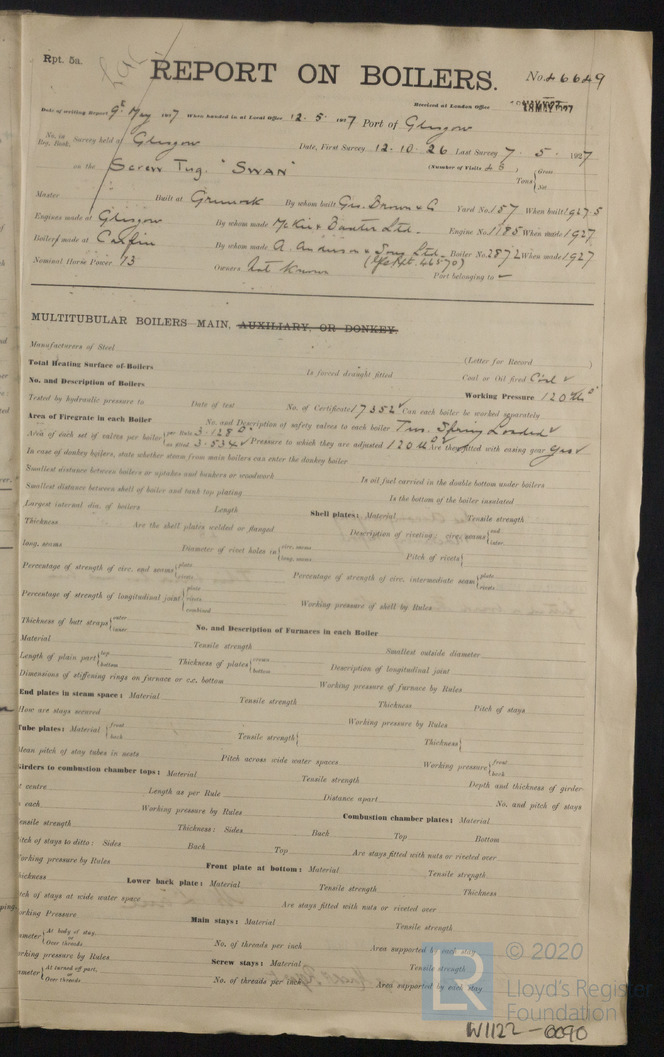 Rpt. 5a.
REPORT ON BOILERS.
No. 46649
Received at London Office
Date of writing Report 9th May 1927 When handed in at Local Office 12. 5. 1927 Port of Glasgow
No. in Reg. Book. Survey held at Glasgow Date, First Survey 12. 10. 26 Last Survey 7. 5. 1927
on the Screw Tug. "SWAN" (Number of Visits 43) Tons { Gross Net
Master Built at Greenock By whom built Geo. Brown & Co Yard No. 157 When built 1927.5
Engines made at Glasgow By whom made McKie & Baxter Ltd. Engine No. 1185 When made 1927
Boilers made at Carfin By whom made A. Anderson & Sons Ltd. Boiler No. 2872 When made 1927
(Gls Rpt. 46570)
Nominal Horse Power 73 Owners Not Known Port belonging to
MULTITUBULAR BOILERS MAIN, AUXILIARY, OR DONKEY.
Manufacturers of Steel (Letter for Record )
Total Heating Surface of Boilers Is forced draught fitted Coal or Oil fired Coal ✓
No. and Description of Boilers Working Pressure 120 lbs □"
Tested by hydraulic pressure to Date of test No. of Certificate 17352 ✓ Can each boiler be worked separately
Area of Firegrate in each Boiler No. and Description of safety valves to each boiler Two. Spring Loaded ✓
Area of each set of valves per boiler { per Rule 3.128 □" as fitted 3.534 ✓ Pressure to which they are adjusted 120 lb □" ✓ Are they fitted with easing gear Yes ✓
In case of donkey boilers, state whether steam from main boilers can enter the donkey boiler
Smallest distance between boilers or uptakes and bunkers or woodwork Is oil fuel carried in the double bottom under boilers
Smallest distance between shell of boiler and tank top plating Is the bottom of the boiler insulated
Largest internal dia. of boilers Length Shell plates: Material Tensile strength
Thickness Are the shell plates welded or flanged Description of riveting: circ. seams { end inter.
long. seams Diameter of rivet holes in { circ. seams long. seams Pitch of rivets {
Percentage of strength of circ. end seams { plate rivets Percentage of strength of circ. intermediate seam { plate rivets
Percentage of strength of longitudinal joint { plate rivets combined Working pressure of shell by Rules
Thickness of butt straps { outer inner No. and Description of Furnaces in each Boiler
Material Tensile strength Smallest outside diameter
Length of plain part { top bottom Thickness of plates { crown bottom Description of longitudinal joint
Dimensions of stiffening rings on furnace or c.c. bottom Working pressure of furnace by Rules
End plates in steam space: Material Tensile strength Thickness Pitch of stays
How are stays secured Working pressure by Rules
Tube plates: Material { front back Tensile strength { Thickness {
Mean pitch of stay tubes in nests Pitch across wide water spaces Working pressure { front back
Girders to combustion chamber tops: Material Tensile strength Depth and thickness of girder
centre Length as per Rule Distance apart No. and pitch of stays
each Working pressure by Rules Combustion chamber plates: Material
ensile strength Thickness: Sides Back Top Bottom
itch of stays to ditto: Sides Back Top Are stays fitted with nuts or riveted over
orking pressure by Rules Front plate at bottom: Material Tensile strength
ickness Lower back plate: Material Tensile strength Thickness
tch of stays at wide water space Are stays fitted with nuts or riveted over
orking Pressure Main stays: Material Tensile strength
ameter { At body of stay, or Over threads. No. of threads per inch Area supported by each stay
orking pressure by Rules Screw stays: Material Tensile strength
ameter { At turned off part, or Over threads. No. of threads per inch Area supported by each stay
© 2020
Lloyd's Register
Foundation
W1122-0090